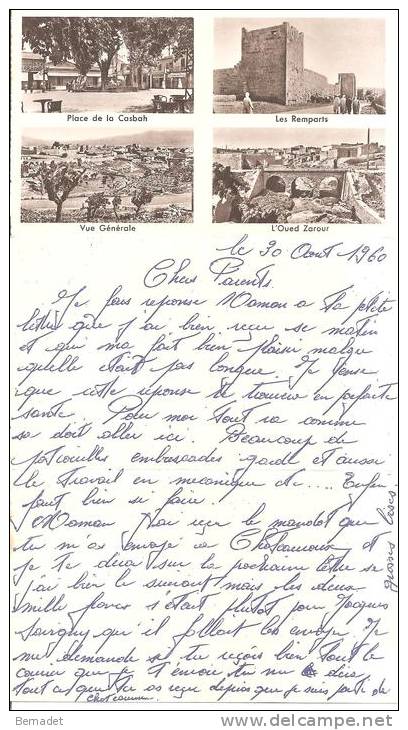 Place de la Casbah
Les Remparts
Vue Générale
L'Oued Zarour
le 30 Aout 1960
Chers Parents.
Je fais reponse Maman a ta petite
lettre que j'ai bien reçu se matin
et qui ma fait bien plaisir malgre
quelle etait pas longue. Je pense
que cette reponse te trouve en parfaite
sante. Pour moi tout va comme
sa doit aller ici. Beaucoup de
patrouilles embuscades garde et aussi
le travail en mecanique etc..... Enfin
faut bien se faire
Maman j'ai reçu le mandat que
tu m'as envoyé a Chateauroux et
je te dirai sur la prochaine lettre si
j'ai bien le suivant mais les deux
mille francs s'était plutot pour Jacques
Savigny qu'il fallait les envoyer. Je
me demande si tu reçois bien tout le
courier que je t'envoie tu me dis
tout ce que tu as reçu depuis que je suis parti de
Chateauroux
grosses bises
Bernadet
www.delcampe.net